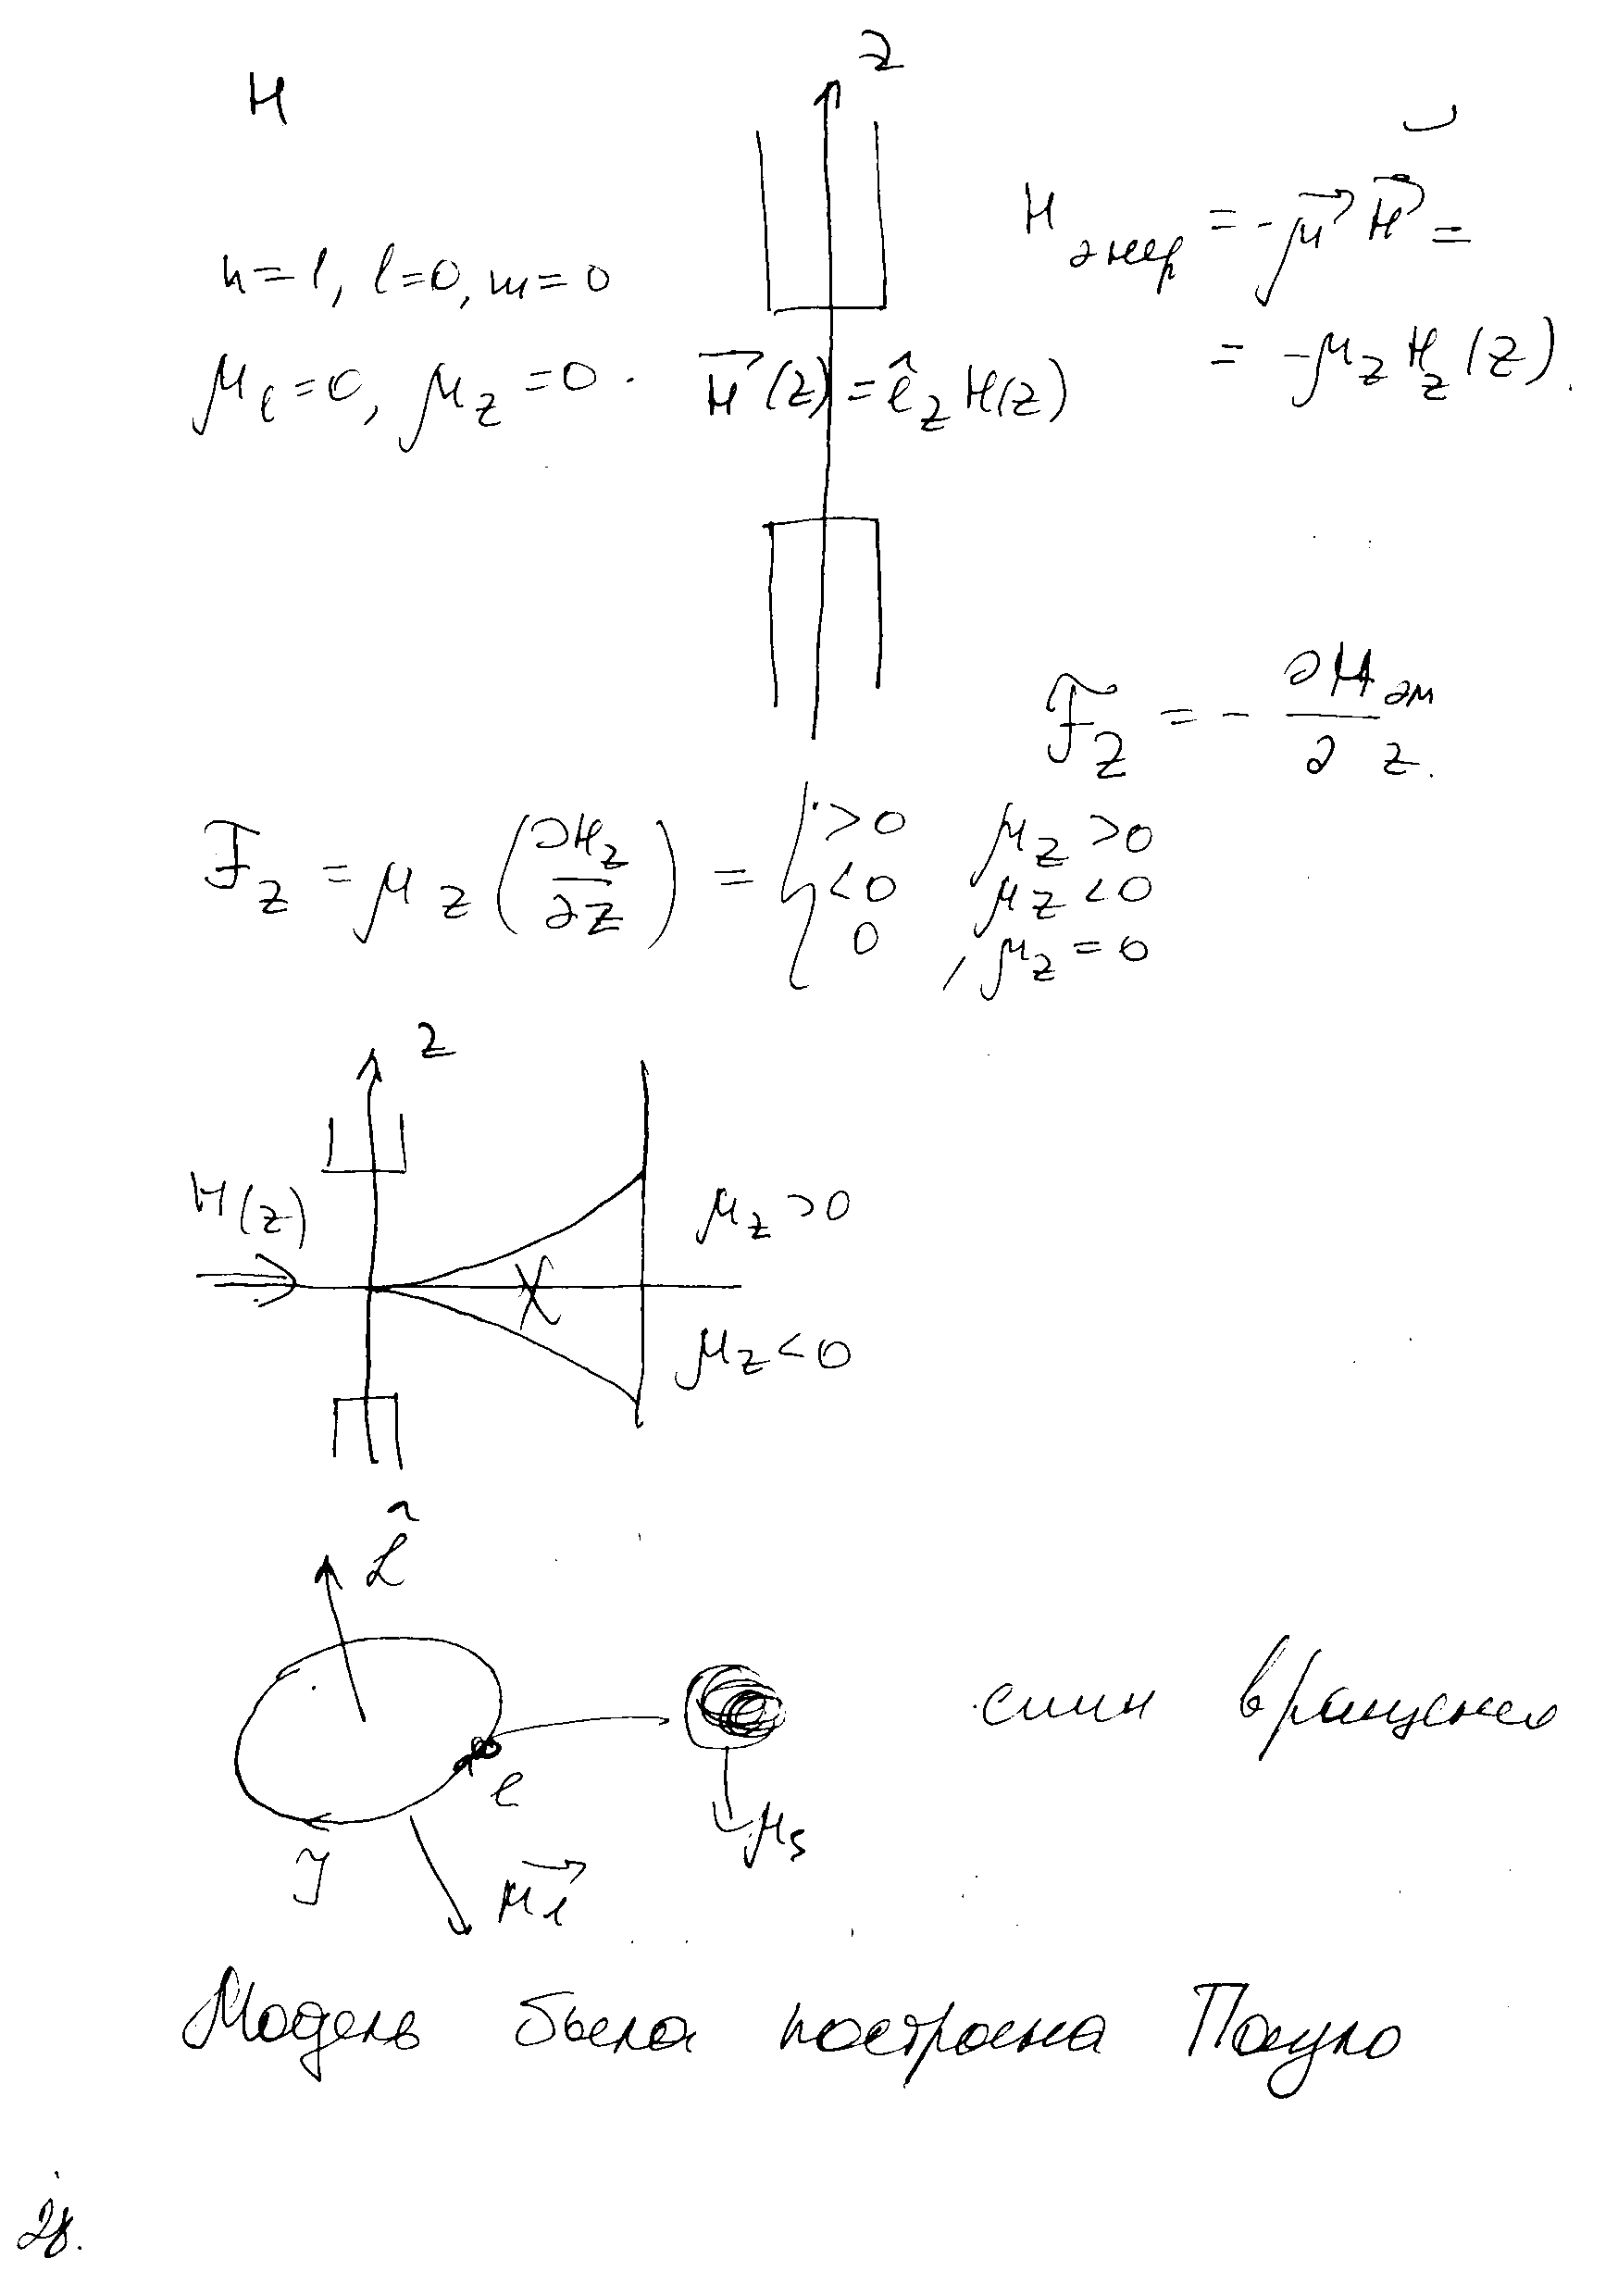 H
z
n=1, l=0, m=0
H энер = -μ⃗ H⃗ =
= -μ_z H_z (z).
μ_l=0, μ_z=0.
H⃗ (z) = ê_z H(z)
F_z = - ∂H_эм / ∂z.
F_z = μ_z (∂H_z / ∂z) = { >0 μ_z >0
<0 μ_z <0
0 , μ_z = 0
z
H(z)
μ_z >0
μ_z <0
L̂
e
J
μ_l⃗
μ_s
спин вращение
Модель была построена Пауло
28.